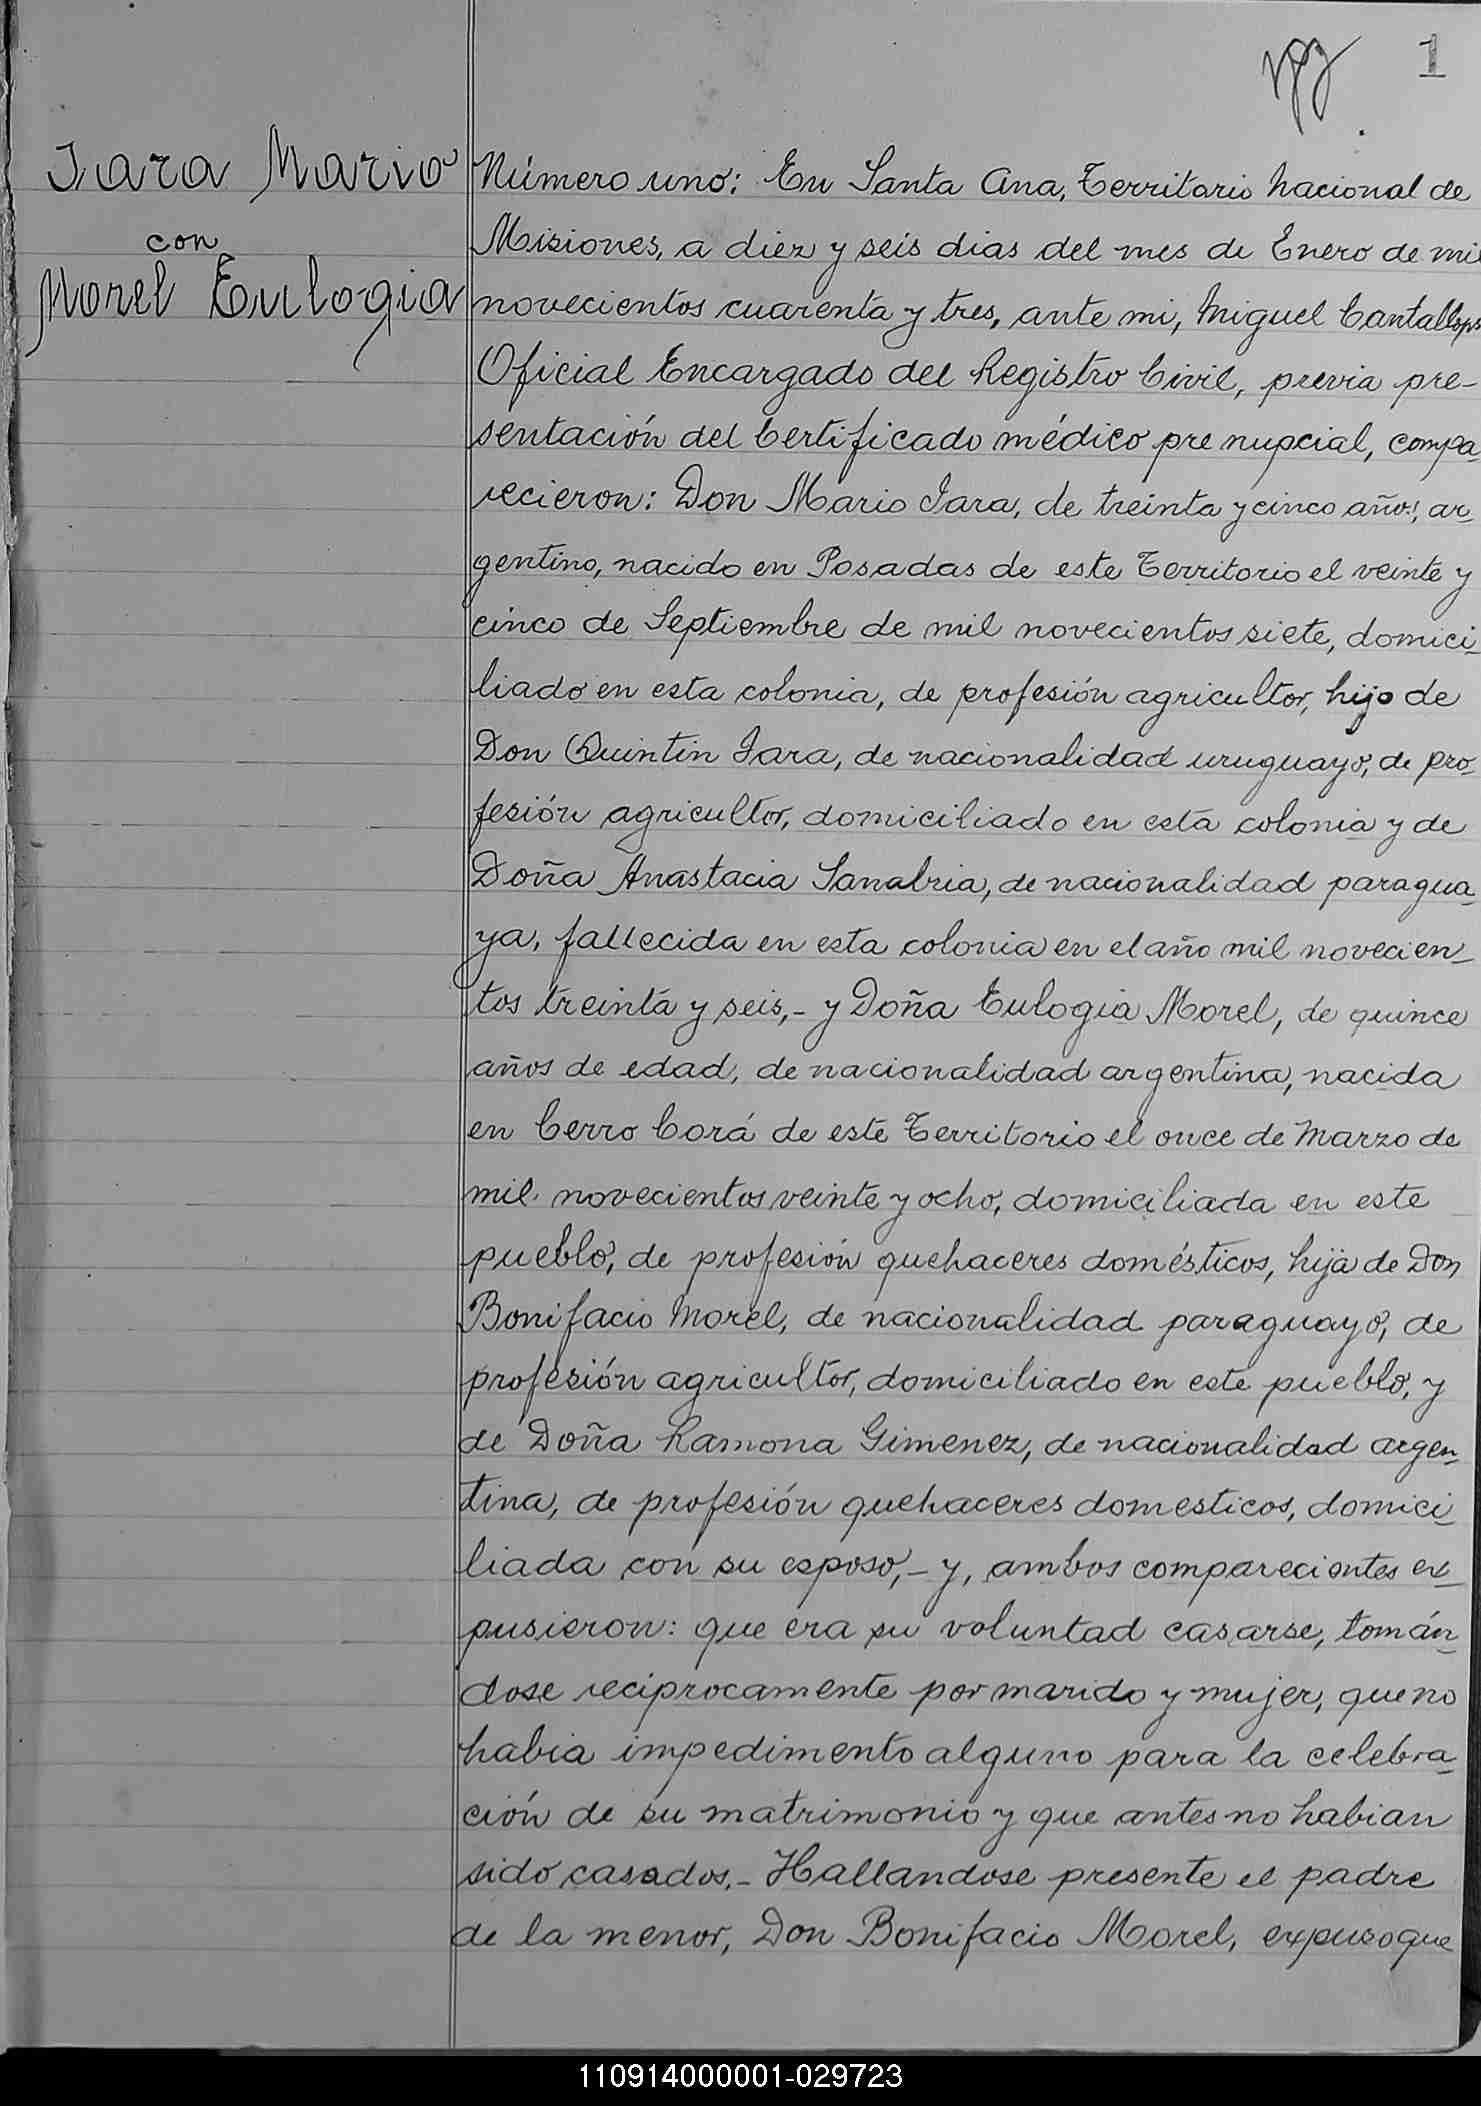 1
Jara Mario
con
Morel Eulogia
Número uno: En Santa Ana, Territorio Nacional de
Misiones, a diez y seis dias del mes de Enero de mil
novecientos cuarenta y tres, ante mi, Miguel Cantallops
Oficial Encargado del Registro Civil, previa pre-
sentación del Certificado médico pre nupcial, compa-
recieron: Don Mario Jara, de treinta y cinco años, ar-
gentino, nacido en Posadas de este Territorio el veinte y
cinco de Septiembre de mil novecientos siete, domici-
liado en esta colonia, de profesión agricultor, hijo de
Don Quintin Jara, de nacionalidad uruguayo, de pro-
fesión agricultor, domiciliado en esta colonia y de
Doña Anastacia Sanabria, de nacionalidad paragua-
ya, fallecida en esta colonia en el año mil novecien-
tos treinta y seis,- y Doña Eulogia Morel, de quince
años de edad, de nacionalidad argentina, nacida
en Cerro Corá de este Territorio el once de Marzo de
mil novecientos veinte y ocho, domiciliada en este
pueblo, de profesión quehaceres domésticos, hija de Don
Bonifacio Morel, de nacionalidad paraguayo, de
profesión agricultor, domiciliado en este pueblo, y
de Doña Ramona Gimenez, de nacionalidad argen-
tina, de profesión quehaceres domesticos, domici-
liada con su esposo,- y, ambos comparecientes ex-
pusieron: que era su voluntad casarse, tomán-
dose reciprocamente por marido y mujer, que no
habia impedimento alguno para la celebra-
ción de su matrimonio y que antes no habian
sido casados.- Hallandose presente el padre
de la menor, Don Bonifacio Morel, expuso que
110914000001-029723